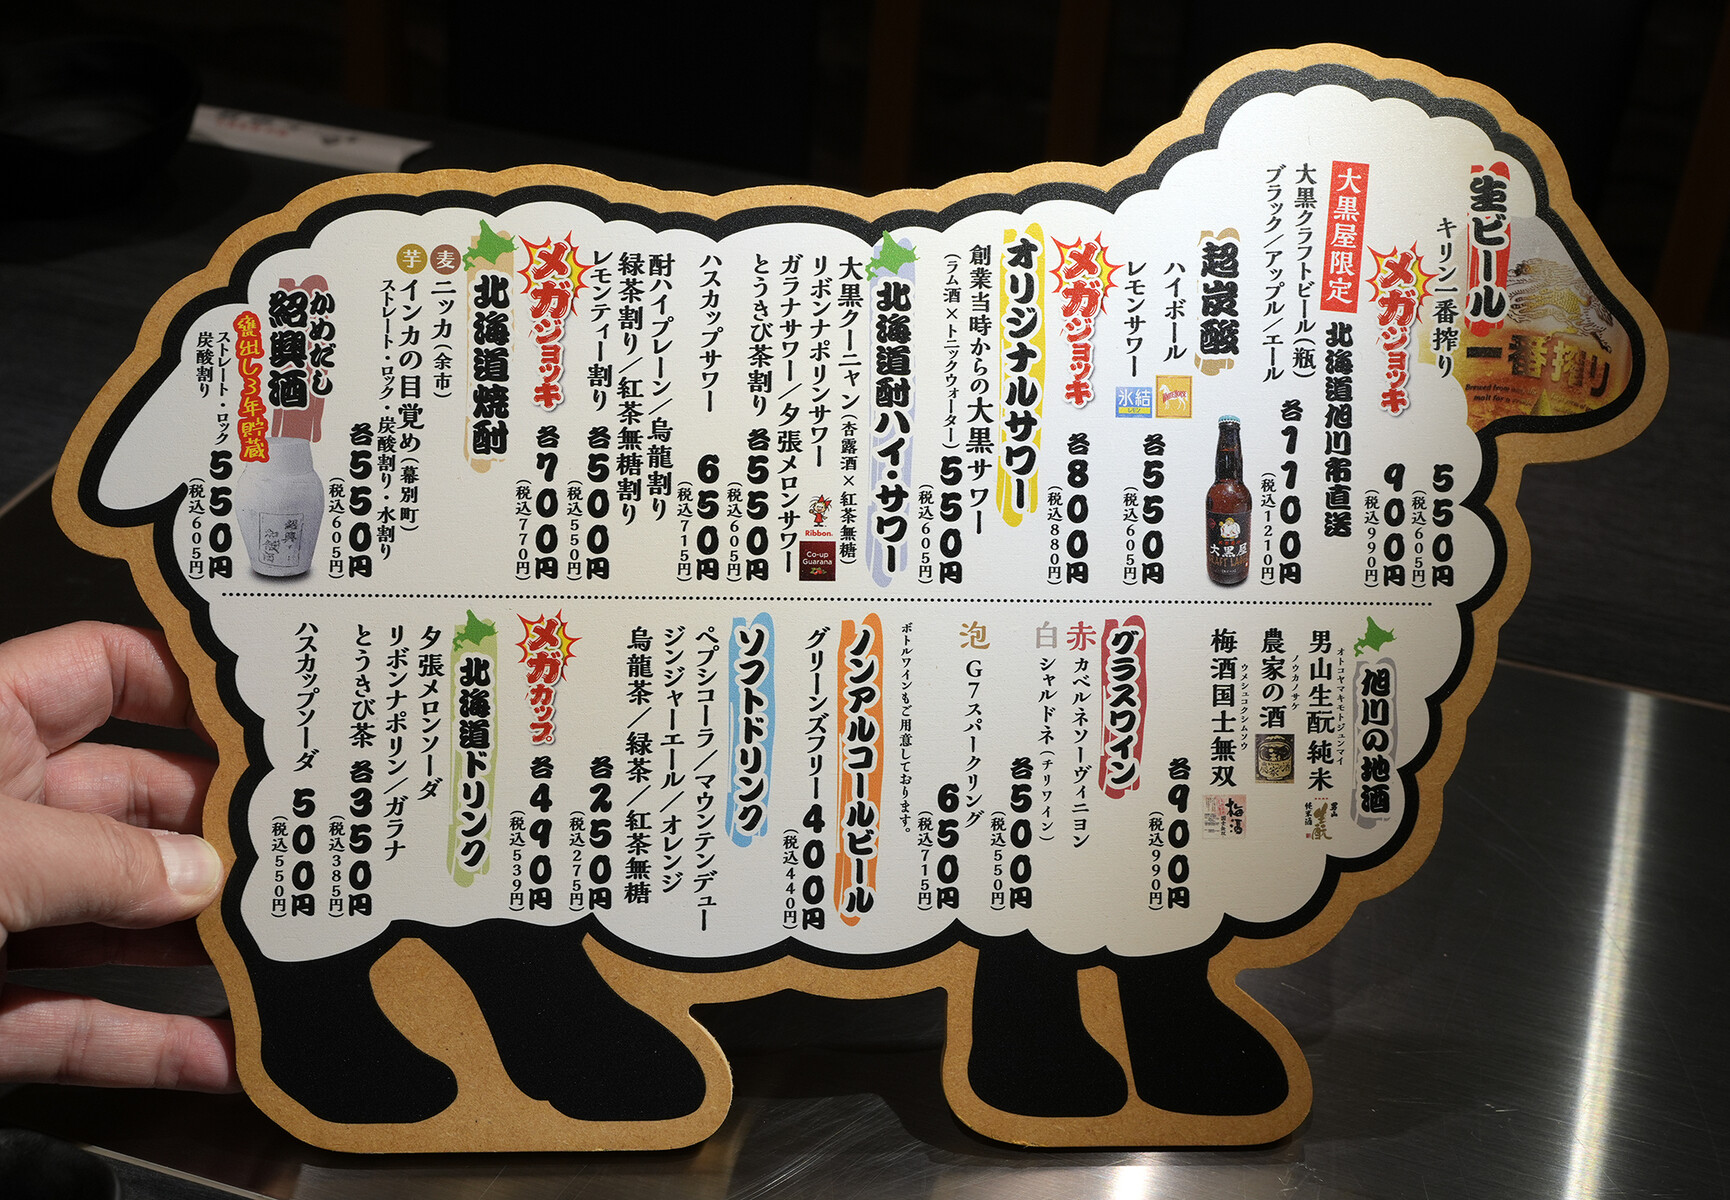 生ビール
キリン一番搾り
550円
(税込605円)
メガジョッキ
900円
(税込990円)
一番搾り
大黒屋限定
北海道旭川市直送
大黒クラフトビール(瓶)
ブラック/アップル/エール
各1100円
(税込1210円)
大黒屋
超炭酸
ハイボール
レモンサワー
氷結
レモン
各550円
(税込605円)
メガジョッキ
各800円
(税込880円)
オリジナルサワー
創業当時からの大黒サワー
(ラム酒×トニックウォーター)
550円
(税込605円)
北海道酎ハイ・サワー
大黒クーニャン(杏露酒×紅茶無糖)
リボンナポリンサワー
Ribbon.
Co-up
Guarana
ガラナサワー/夕張メロンサワー
とうきび茶割り
各550円
(税込605円)
ハスカップサワー
650円
(税込715円)
酎ハイプレーン/烏龍割り
緑茶割り/紅茶無糖割り
レモンティー割り
各500円
(税込550円)
メガジョッキ
各700円
(税込770円)
北海道焼酎
麦
ニッカ(余市)
芋
インカの目覚め(幕別町)
ストレート・ロック・炭酸割り・水割り
各550円
(税込605円)
かめだし
紹興酒
甕出し3年貯蔵
ストレート・ロック
炭酸割り
550円
(税込605円)
旭川の地酒
オトコヤマキモトジュンマイ
男山生酛純米
ノウカノサケ
農家の酒
ウメシュコクシムソウ
梅酒国士無双
梅酒
各900円
(税込990円)
グラスワイン
赤
カベルネソーヴィニヨン
白
シャルドネ(チリワイン)
各500円
(税込550円)
泡
G7スパークリング
650円
(税込715円)
ボトルワインもご用意しております。
ノンアルコールビール
グリーンズフリー
400円
(税込440円)
ソフトドリンク
ペプシコーラ/マウンテンデュー
ジンジャーエール/オレンジ
烏龍茶/緑茶/紅茶無糖
各250円
(税込275円)
メガカップ
各490円
(税込539円)
北海道ドリンク
夕張メロンソーダ
リボンナポリン/ガラナ
とうきび茶
各350円
(税込385円)
ハスカップソーダ
500円
(税込550円)